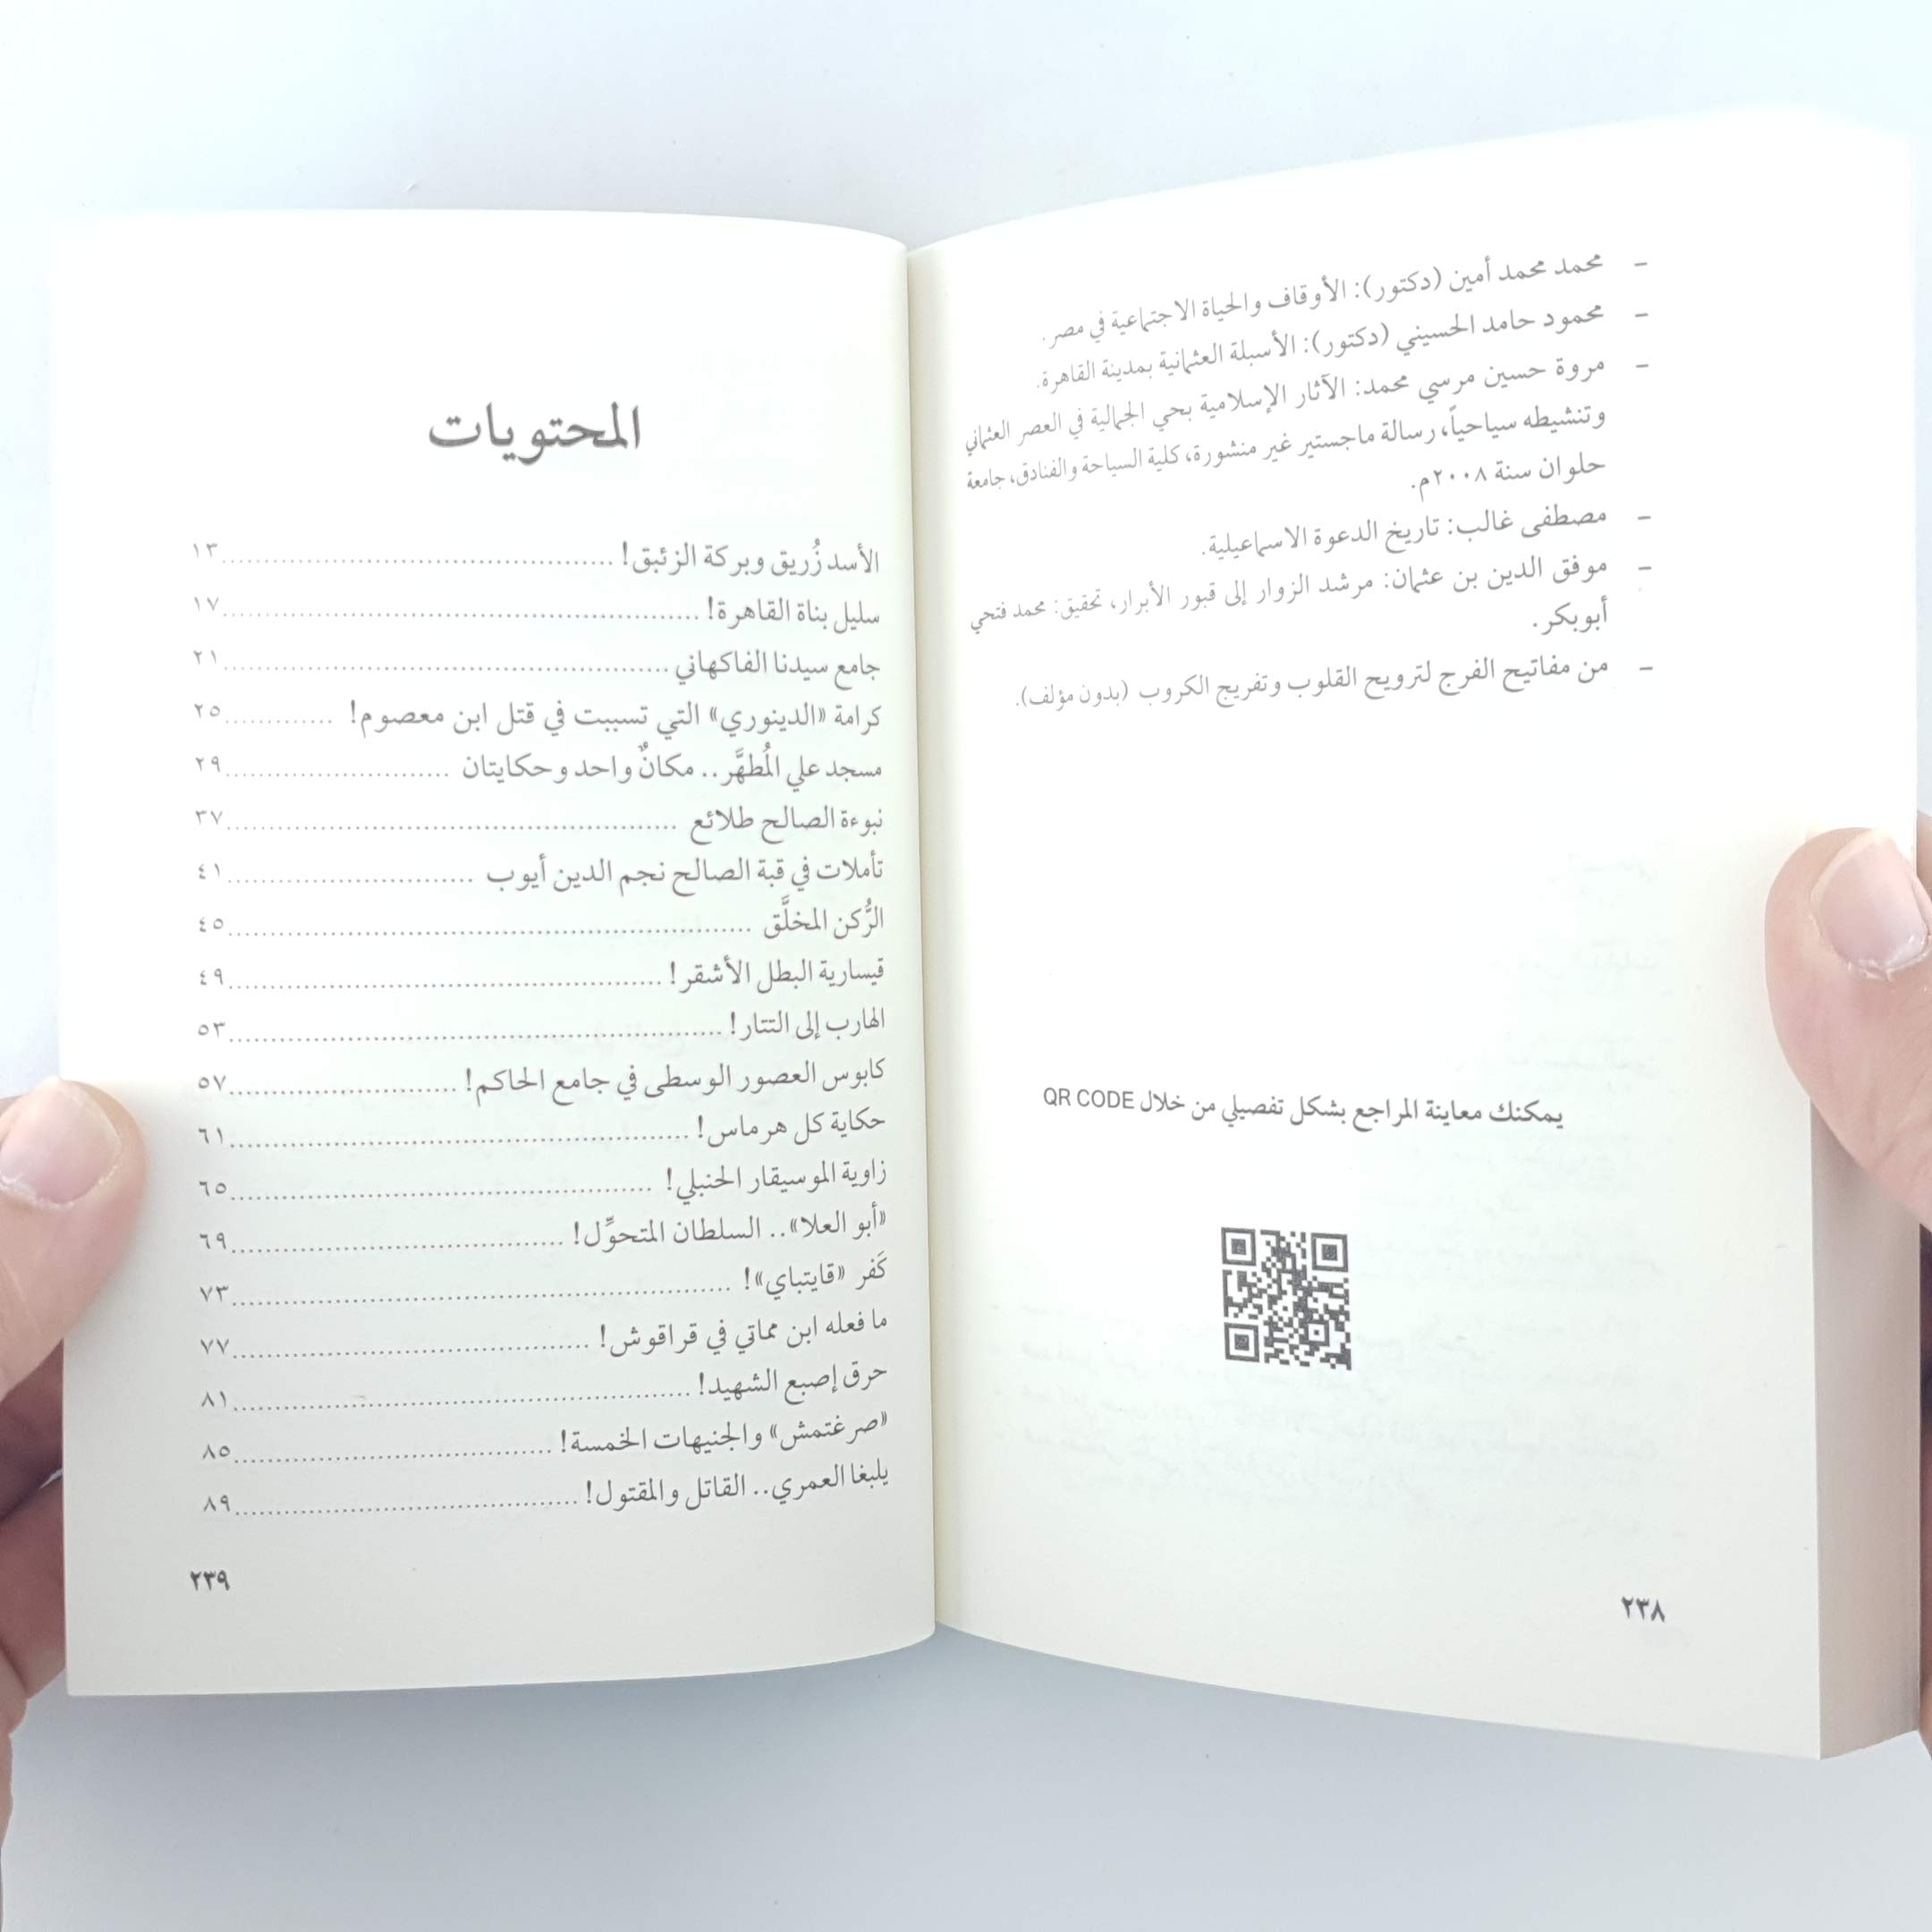 – محمد محمد أمين (دكتور): الأوقاف والحياة الاجتماعية في مصر.
– محمود حامد الحسيني (دكتور): الأسبلة العثمانية بمدينة القاهرة.
– مروة حسين مرسي محمد: الآثار الإسلامية بحي الجمالية في العصر العثماني
وتنشيطه سياحياً، رسالة ماجستير غير منشورة، كلية السياحة والفنادق، جامعة
حلوان سنة ٢٠٠٨م.
– مصطفى غالب: تاريخ الدعوة الاسماعيلية.
– موفق الدين بن عثمان: مرشد الزوار إلى قبور الأبرار، تحقيق: محمد فتحي
أبوبكر.
– من مفاتيح الفرج لترويح القلوب وتفريج الكروب (بدون مؤلف).
يمكنك معاينة المراجع بشكل تفصيلي من خلال QR CODE
٢٣٨
المحتويات
الأسد زُريق وبركة الزئبق! ........ ١٣
سليل بناة القاهرة! ........ ١٧
جامع سيدنا الفاكهاني ........ ٢١
كرامة «الدينوري» التي تسببت في قتل ابن معصوم! ........ ٢٥
مسجد علي المُطهَّر.. مكانٌ واحد وحكايتان ........ ٢٩
نبوءة الصالح طلائع ........ ٣٧
تأملات في قبة الصالح نجم الدين أيوب ........ ٤١
الرُّكن المخلَّق ........ ٤٥
قيسارية البطل الأشقر! ........ ٤٩
الهارب إلى التتار! ........ ٥٣
كابوس العصور الوسطى في جامع الحاكم! ........ ٥٧
حكاية كل هرماس! ........ ٦١
زاوية الموسيقار الحنبلي! ........ ٦٥
«أبو العلا».. السلطان المتحوِّل! ........ ٦٩
كَفر «قايتباي»! ........ ٧٣
ما فعله ابن مماتي في قراقوش! ........ ٧٧
حرق إصبع الشهيد! ........ ٨١
«صرغتمش» والجنيهات الخمسة! ........ ٨٥
يلبغا العمري.. القاتل والمقتول! ........ ٨٩
٢٣٩